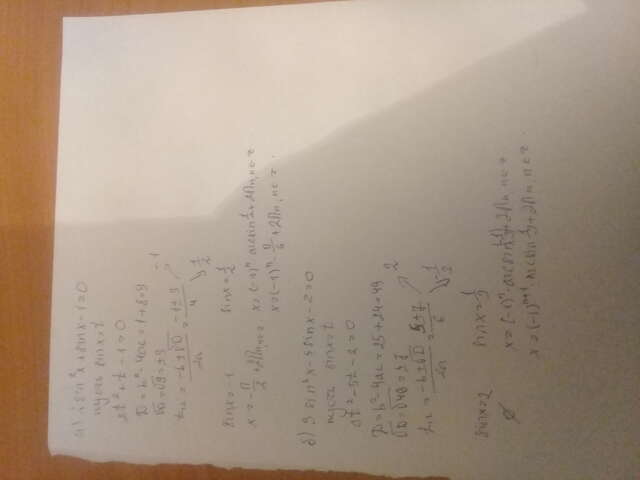 а) 2sin²x+sinx-1=0
пусть sinx=t
2t²+t-1=0
D=b²-4ac=1+8=9
√D=√9=±3
t₁,₂=(-b±√D)/2a=(-1±3)/4 -1 1/2
sinx=-1 sinx=1/2
x=-π/2+2πn,n∈z. x=(-1)ⁿ·arcsin1/2+2πn,n∈z.
x=(-1)ⁿ·π/6+2πn,n∈z.
б) 3sin²x-5sinx-2=0
пусть sinx=t
3t²-5t-2=0
D=b²-4ac=25+24=49
√D=√49=±7
t₁,₂=(-b±√D)/2a=(5±7)/6 2 -1/3
sinx=2 sinx=-1/3
∅ x=(-1)ⁿ·arcsin(-1/3)+2πn,n∈z
x=(-1)ⁿ⁺¹·arcsin1/3+2πn,n∈z